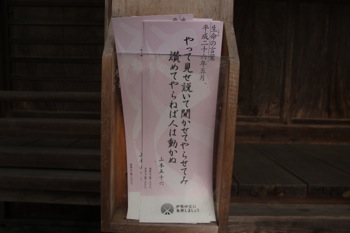 生命の言葉
平成二十六年五月
やって見せ説いて聞かせてやらせてみ
讃めてやらねば人は動かぬ
山本五十六